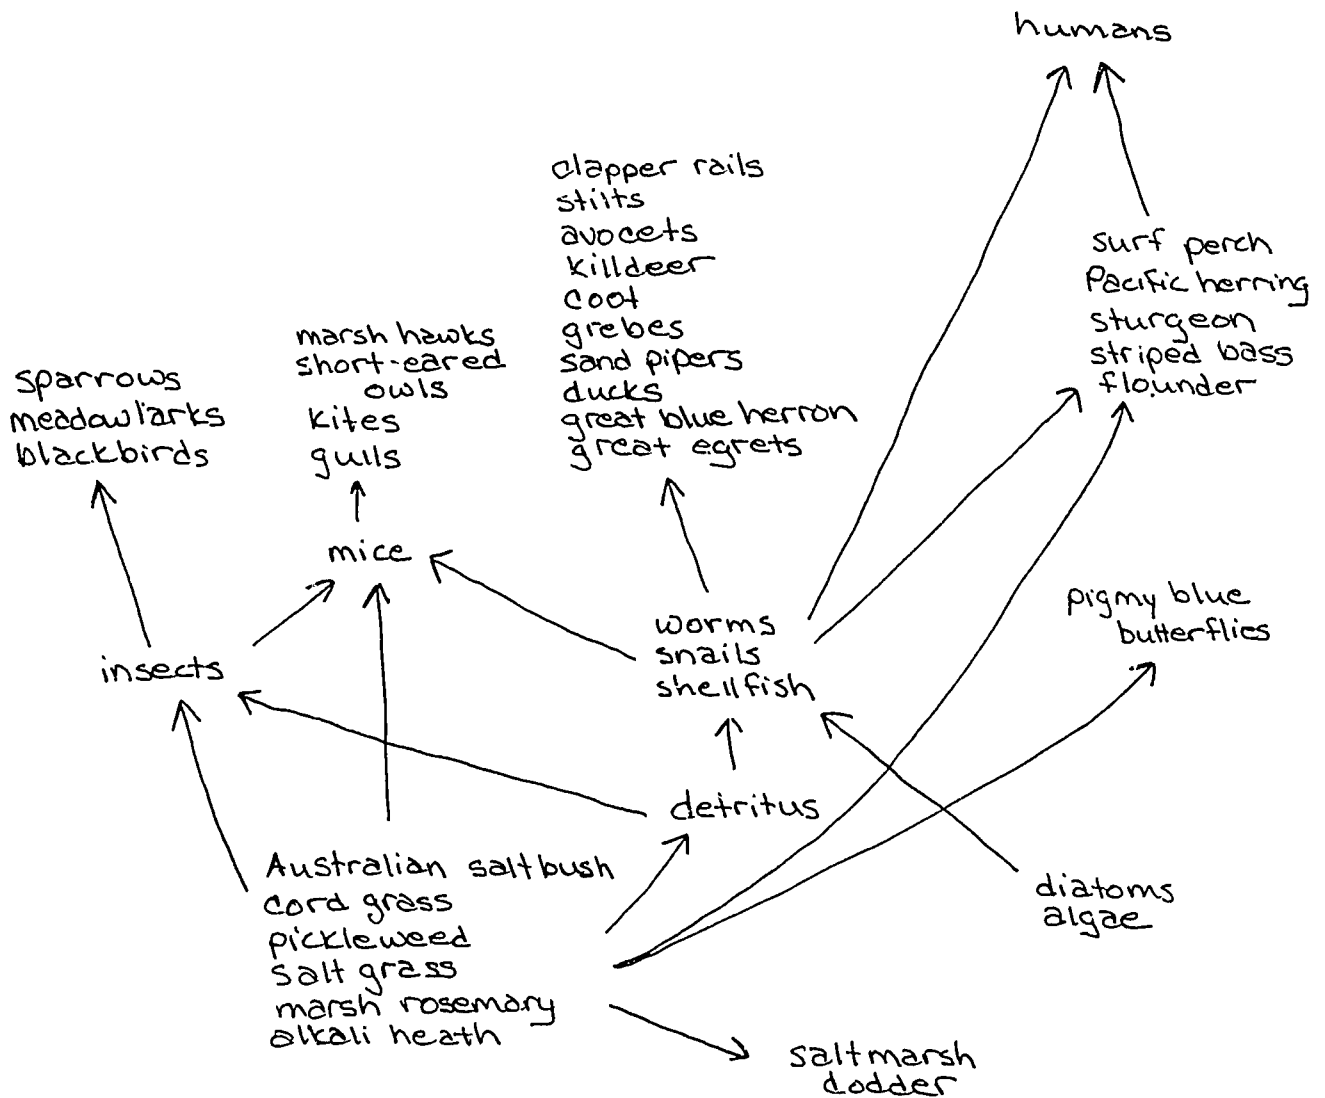 humans
clapper rails
stilts
avocets
killdeer
coot
grebes
sand pipers
ducks
great blue herron
great egrets
surf perch
Pacific herring
sturgeon
striped bass
flounder
marsh hawks
short-eared
owls
kites
gulls
sparrows
meadowlarks
blackbirds
mice
insects
worms
snails
shellfish
pigmy blue
butterflies
detritus
Australian saltbush
cord grass
pickleweed
salt grass
marsh rosemary
alkali heath
diatoms
algae
saltmarsh
dodder